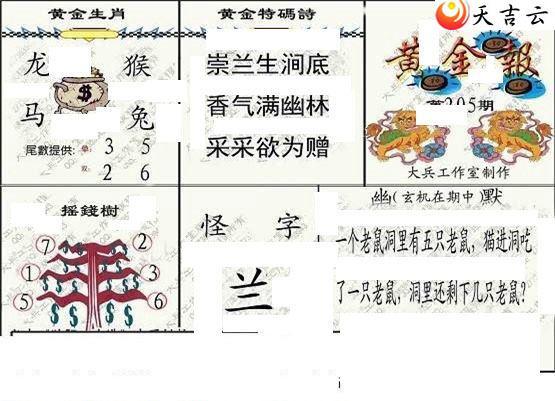 黄金生肖
龙 猴
马 兔
尾數提供: 單: 3 5
双: 2 6
黄金特碼詩
崇兰生涧底
香气满幽林
采采欲为赠
天吉云
黄金報
205期
大兵工作室制作
摇錢樹
7 2
1 3
5 6
怪 字
兰
幽(玄机在期中)默
一个老鼠洞里有五只老鼠，猫进洞吃
了一只老鼠，洞里还剩下几只老鼠?